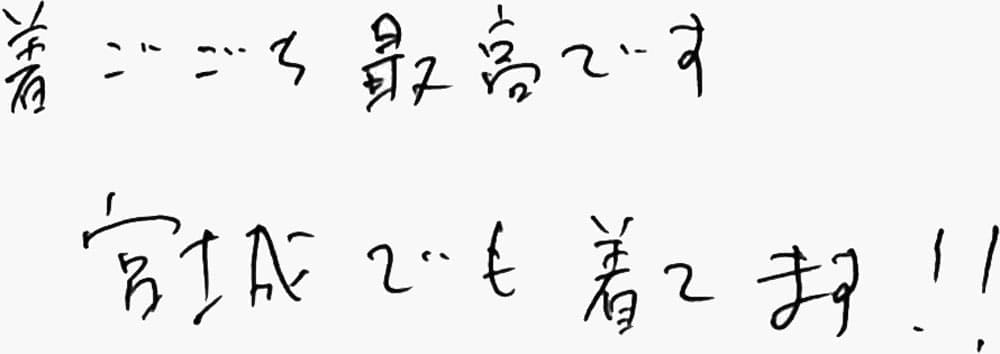 着ごごち最高です
宮城でも着てます!!